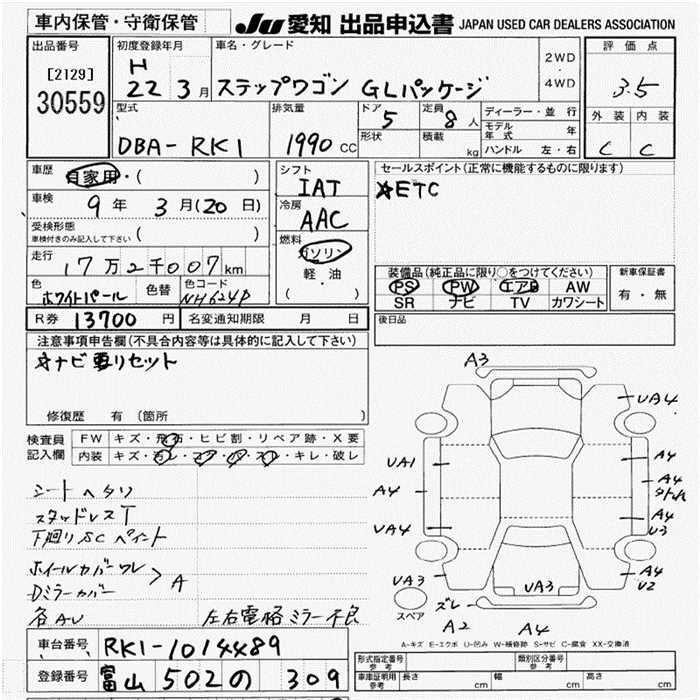 車内保管・守衛保管
JU 愛知 出品申込書 JAPAN USED CAR DEALERS ASSOCIATION
出品番号
[2129]
30559
初度登録年月
H
22 3 月
車名・グレード
ステップワゴン GLパッケージ
2WD
・
4WD
評価点
3.5
外装 内装
C C
型式
DBA-RK1
排気量
1990 CC
ドア
5
形状
定員
8 人
積載
kg
ディーラー・並行
モデル年式 年
ハンドル 左・右
車歴
自家用・( )
車検
9 年 3 月(20 日)
受検形態
車検付きのみ記入して下さい ( )
走行
17 万 2 千 007 km
色
ホワイトパール
色替
色コード
NH624P
シフト
IAT
冷房
AAC
燃料
ガソリン
・
軽・油
( )
セールスポイント(正常に機能するものに限ります)
★ETC
装備品(純正品に限り○をつけてください)
PS PW エアB AW
SR ナビ TV カワシート
新車保証書
有・無
R券 13700 円
名変通知期限 月 日
後日品
注意事項申告欄(不具合内容等は具体的に記入して下さい)
オナビ要リセット
修復歴 有 (箇所
検査員
記入欄
FW キズ・飛石・ヒビ割・リペア跡・X要
内装 キズ・汚レ・コゲ・穴・スレ・キレ・破レ
シートヘタリ
スタッドレスT
下廻りSC ペイント
ホイールカバーワレ
Dミラーカバー
> A
各AU
左右電格ミラー不良
A3
UA4
UA1
A4
A4
A4
UA4
A4
U3
UA3
UA3
A4
U2
ズレ
A2
A4
スペア
A-キズ E-エクボ U-凹み W-補修跡 S-サビ C-腐食 XX-交換済
車台番号 RK1-1014489
登録番号 富山 502 の 309
形式指定番号
参考
類別区分番号
参考
車庫証明用
参考
長さ cm
幅 cm
高さ cm